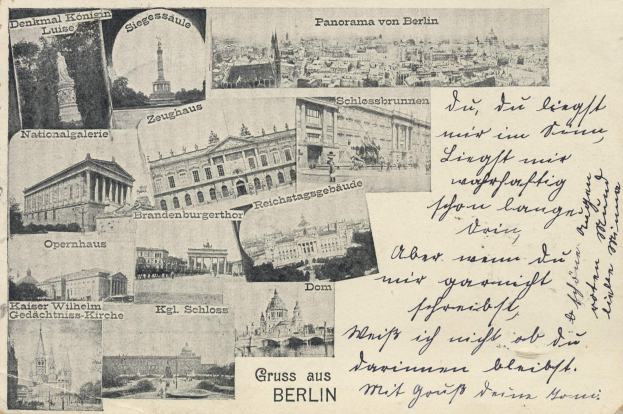 Denkmal Königin
Luise
Siegessäule
Panorama von Berlin
Nationalgalerie
Zeughaus
Schlossbrunnen
Brandenburgerthor
Reichstagsgebäude
Opernhaus
Kaiser Wilhelm
Gedächtniss-Kirche
Kgl. Schloss
Dom
Gruss aus
BERLIN
Du, du liegst
mir im Sinn,
Liegst mir
wahrhaftig
schon lange
drin,
Aber wenn du
mir garnicht
schreibst,
Weiß ich nicht ob du
darinnen bleibst.
Mit Gruß deine
schöne Augen
roten Mund
liebe Minna